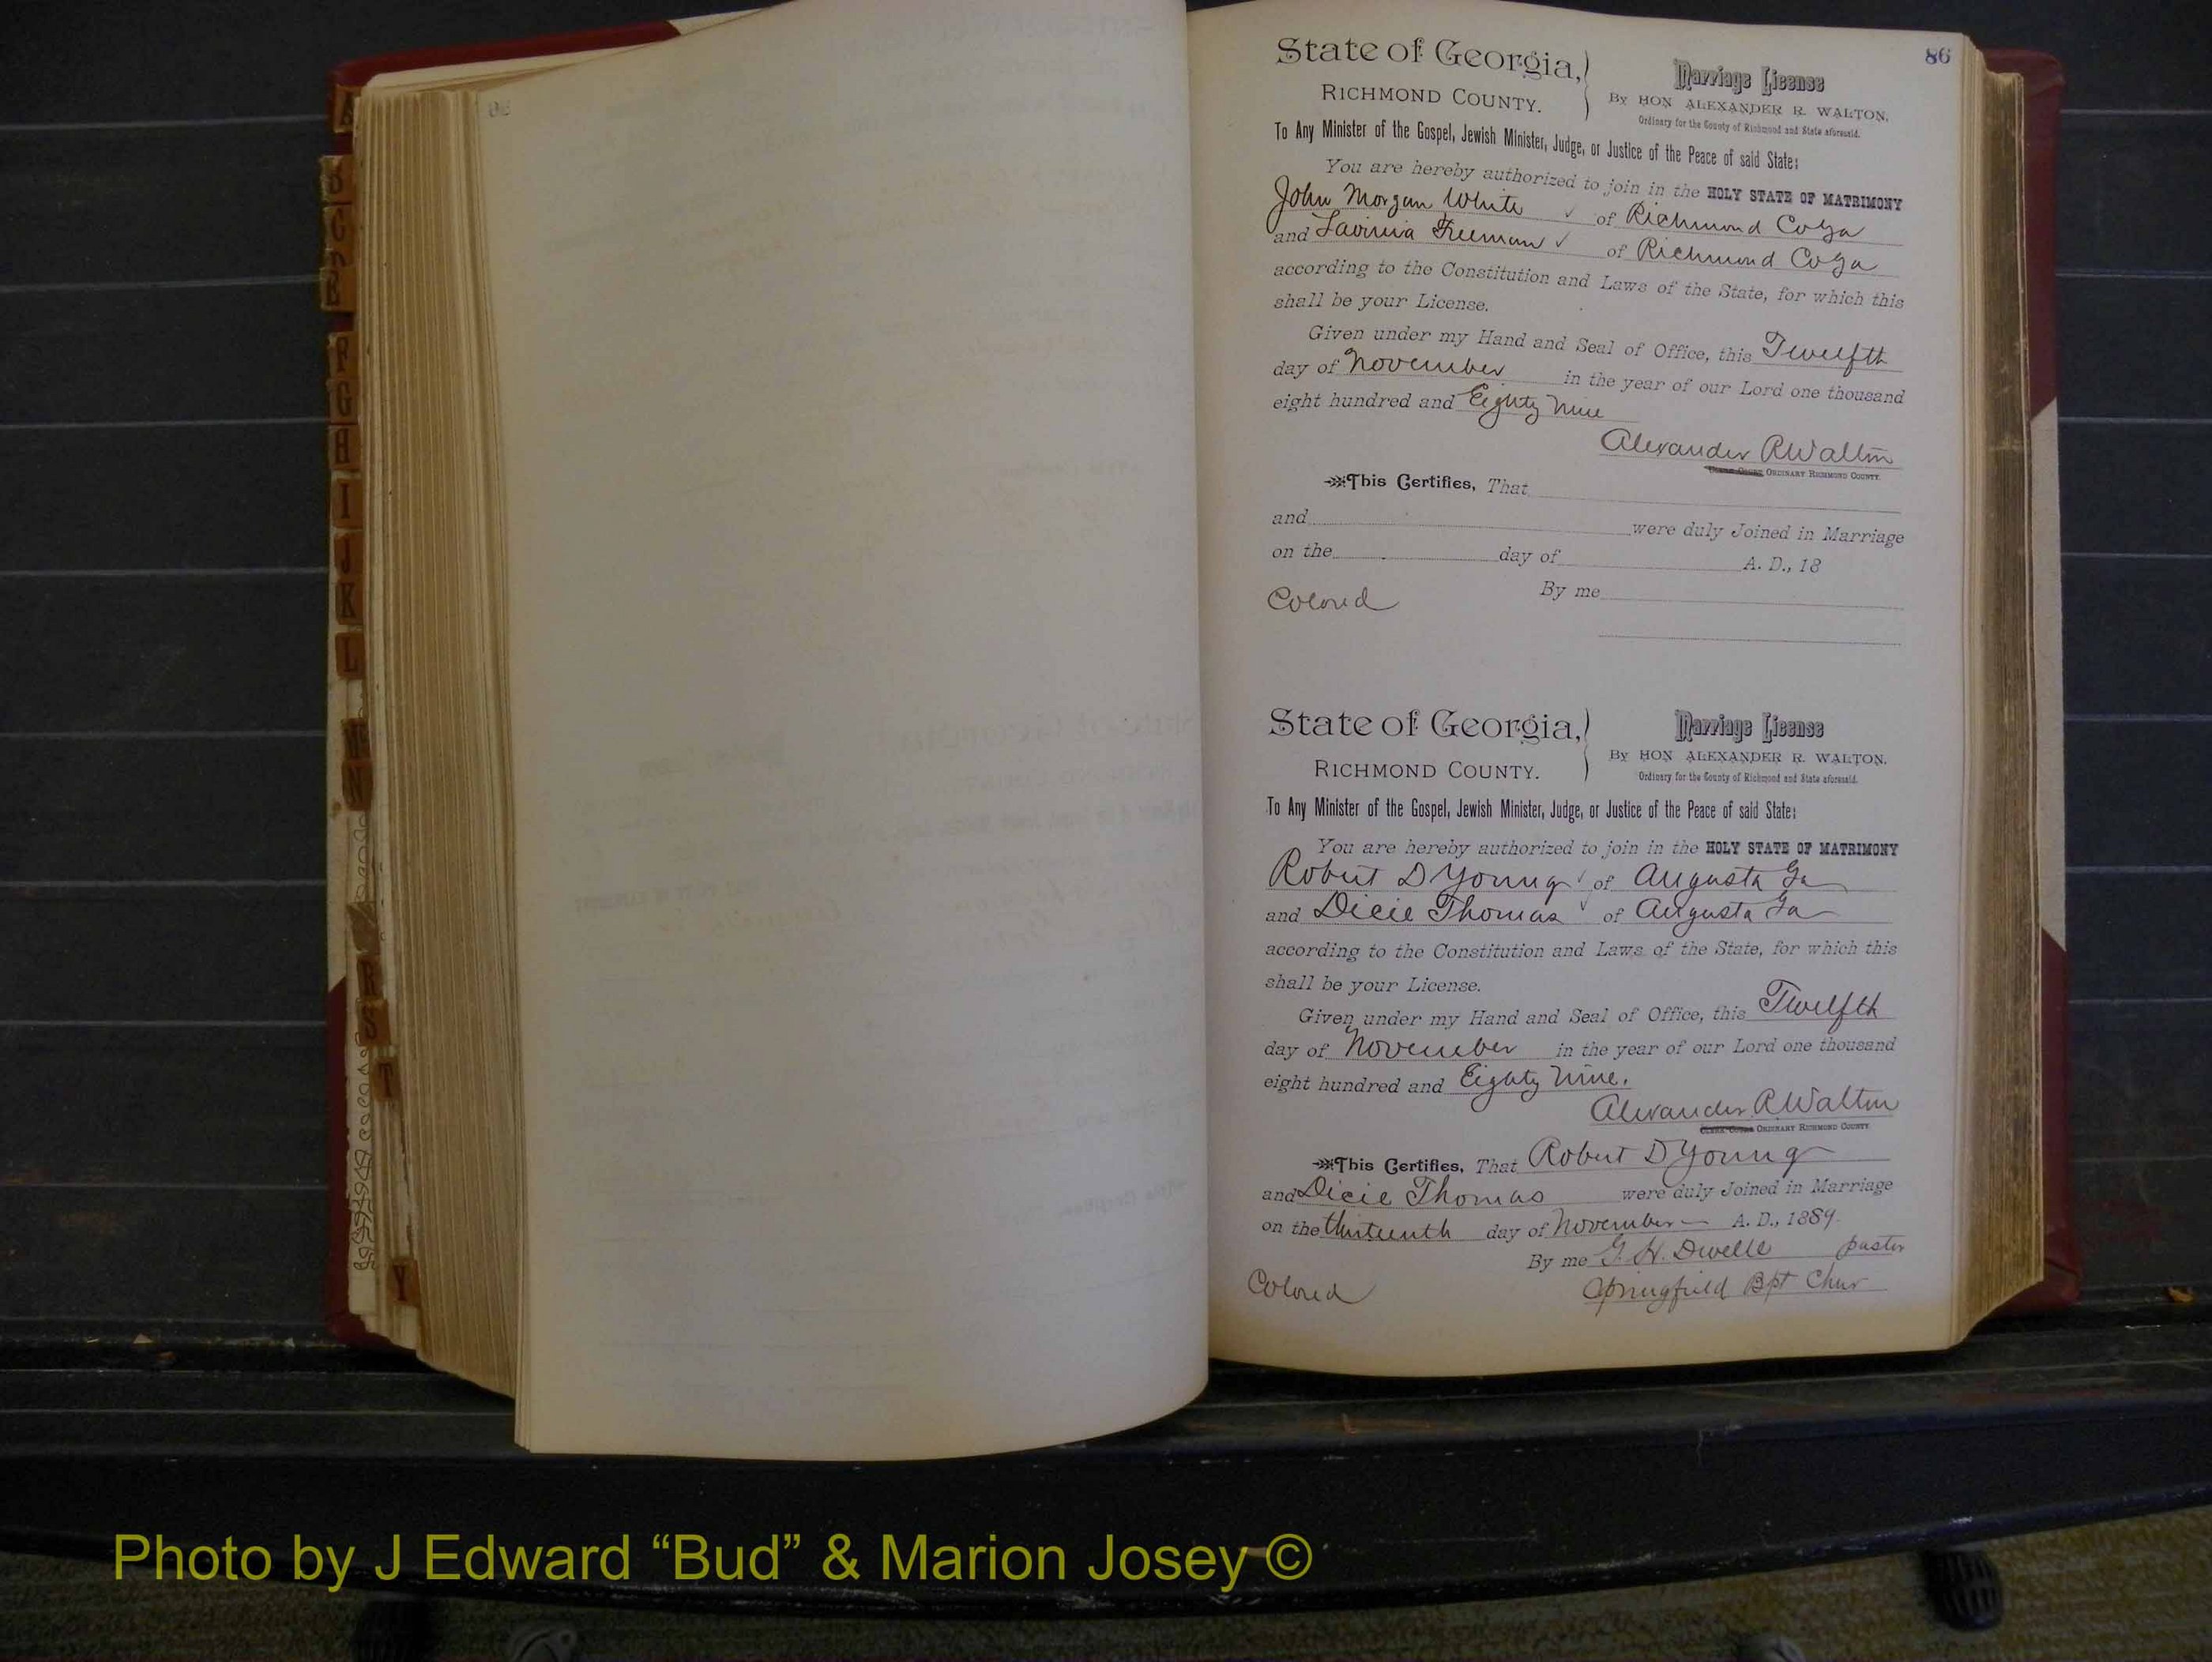 86
State of Georgia,
RICHMOND COUNTY.
Marriage License
By HON ALEXANDER R. WALTON,
Ordinary for the County of Richmond and State aforesaid.
To Any Minister of the Gospel, Jewish Minister, Judge, or Justice of the Peace of said State:
You are hereby authorized to join in the HOLY STATE OF MATRIMONY
John Morgan White ✓ of Richmond Co Ga
and Lavinia Freeman ✓ of Richmond Co Ga
according to the Constitution and Laws of the State, for which this
shall be your License.
Given under my Hand and Seal of Office, this Twelfth
day of November in the year of our Lord one thousand
eight hundred and Eighty Nine
Alexander R Walton
ORDINARY RICHMOND COUNTY.
This Certifies, That
and were duly Joined in Marriage
on the day of A. D., 18
By me
Colored
State of Georgia,
RICHMOND COUNTY.
Marriage License
By HON ALEXANDER R. WALTON,
Ordinary for the County of Richmond and State aforesaid.
To Any Minister of the Gospel, Jewish Minister, Judge, or Justice of the Peace of said State:
You are hereby authorized to join in the HOLY STATE OF MATRIMONY
Robert D Young ✓ of Augusta Ga
and Dicie Thomas ✓ of Augusta Ga
according to the Constitution and Laws of the State, for which this
shall be your License.
Given under my Hand and Seal of Office, this Twelfth
day of November in the year of our Lord one thousand
eight hundred and Eighty Nine.
Alexander R Walton
ORDINARY RICHMOND COUNTY
This Certifies, That Robert D Young
and Dicie Thomas were duly Joined in Marriage
on the thirteenth day of November A. D., 1889.
By me G. H. Dwelle pastor
Colored
Springfield Bpt Chur
A
B
C
F
G
H
I
J
K
L
N
R
S
T
Y
Photo by J Edward “Bud” & Marion Josey ©